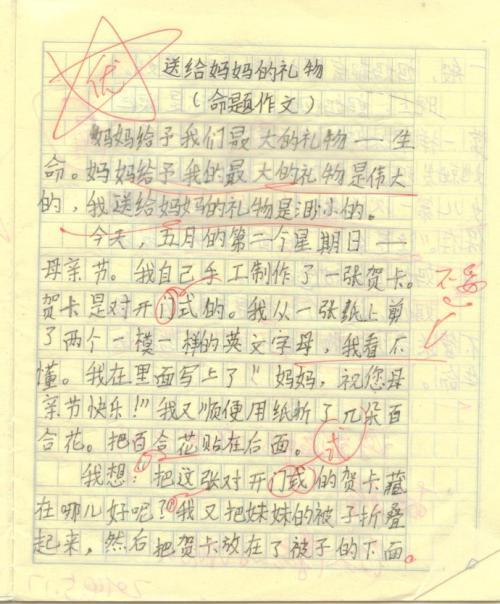 优
送给妈妈的礼物
（命题作文）
妈妈给予我们最大的礼物——生
命。妈妈给予我的最大的礼物是伟大
的，我送给妈妈的礼物是渺小的。
今天，五月的第二个星期日——
母亲节。我自己手工制作了一张贺卡。
贺卡是对开门式的。我从一张纸上剪
了两个一模一样的英文字母，我看不
懂。我在里面写上了“妈妈，祝您母
亲节快乐！”我又顺便用纸折了几朵百
合花。把百合花贴在后面。
式
我想：把这张对开门或的贺卡藏
在哪儿好呢？我又把妹妹的被子折叠
起来，然后把贺卡放在了被子的下面。